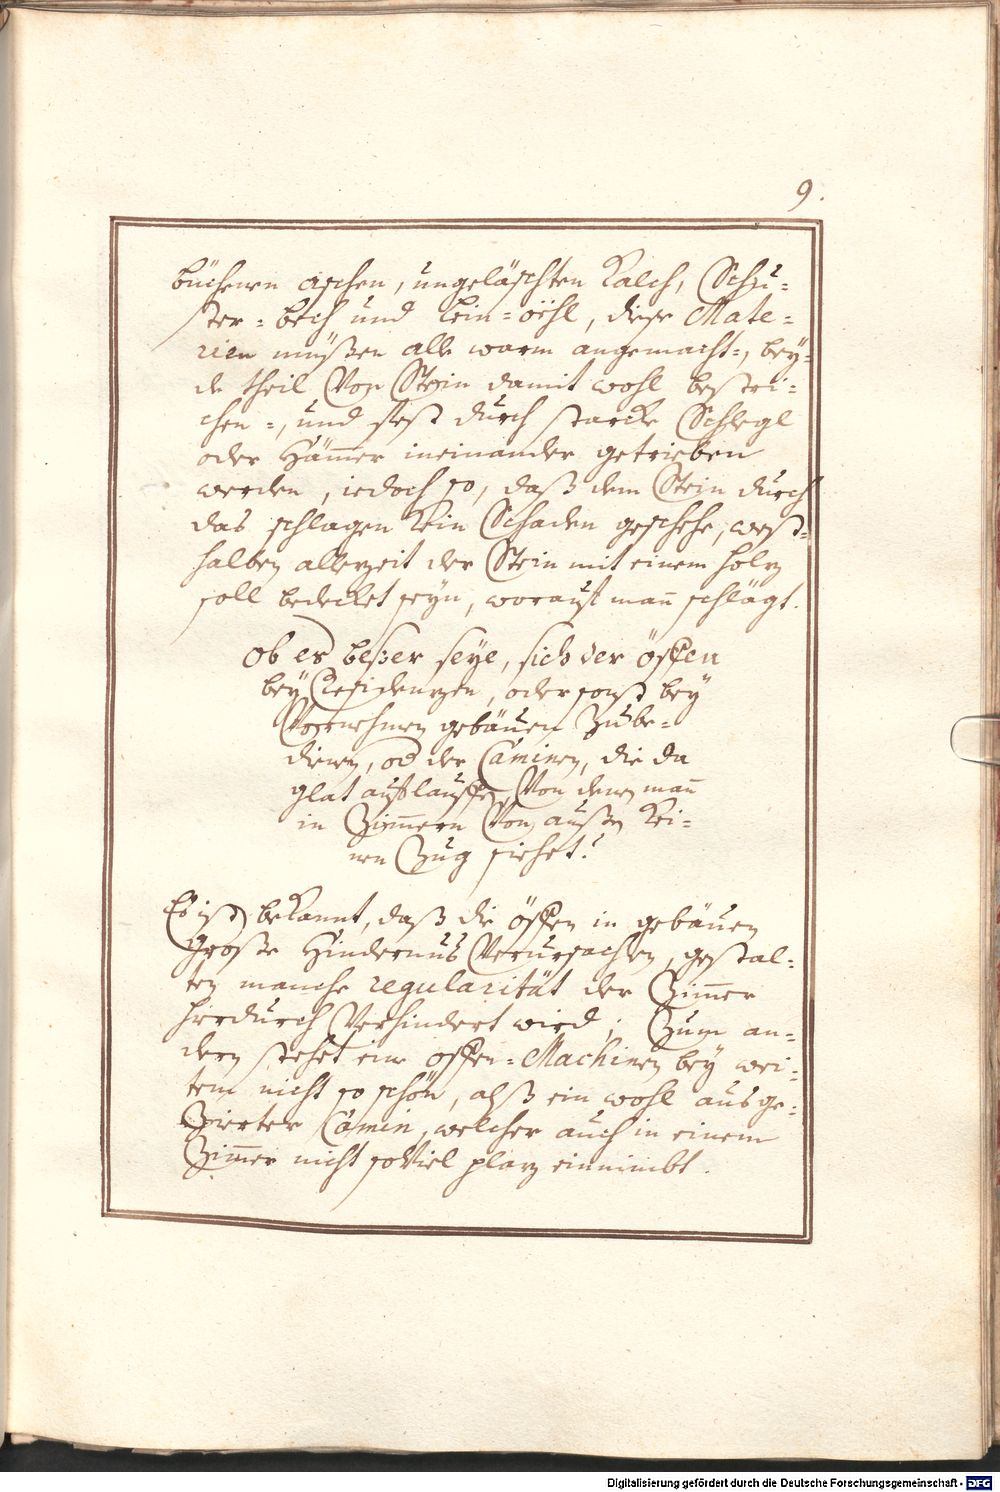 9.
büchenen aschen, ungeläschten Kalch, Schu-
ster-bech und Lein-öehl, diese Mate-
rien müßen alle warm angemacht-, bey-
de theil Von Stein damit wohl bestri-
chen-, und fest durch starcke Schlegl
oder Häm̄er ineinander getrieben
werden, iedoch so, daß dem Stein durch
das schlagen kein Schaden geschehe, weß-
halben allerzeit der Stein mit einem holz
soll bedecket seyn, worauf man̄ schlägt.
Ob es beßer seye, sich der öffen
bey Residenzen, oder sonst bey
Vornehmen gebäuen Zube-
dienen, od der Caminen, die da
glat auslauffen, Von denen man̄
in Zim̄ern Von außen kei-
nen Zug siehet?
Es ist bekannt, daß die öffen in gebäuen
große Hindernus Verursachen, gestal-
ten manche regularität der Zim̄er
hierdurch Verhindert wird; Zum an-
dern stehet eine offen-Machinen bey wei-
tem nicht so schön, alß ein wohl ausge-
Zierter Camin, welcher auch in einem
Zim̄er nicht soViel plaz einnimbt.
Digitalisierung gefördert durch die Deutsche Forschungsgemeinschaft - DFG